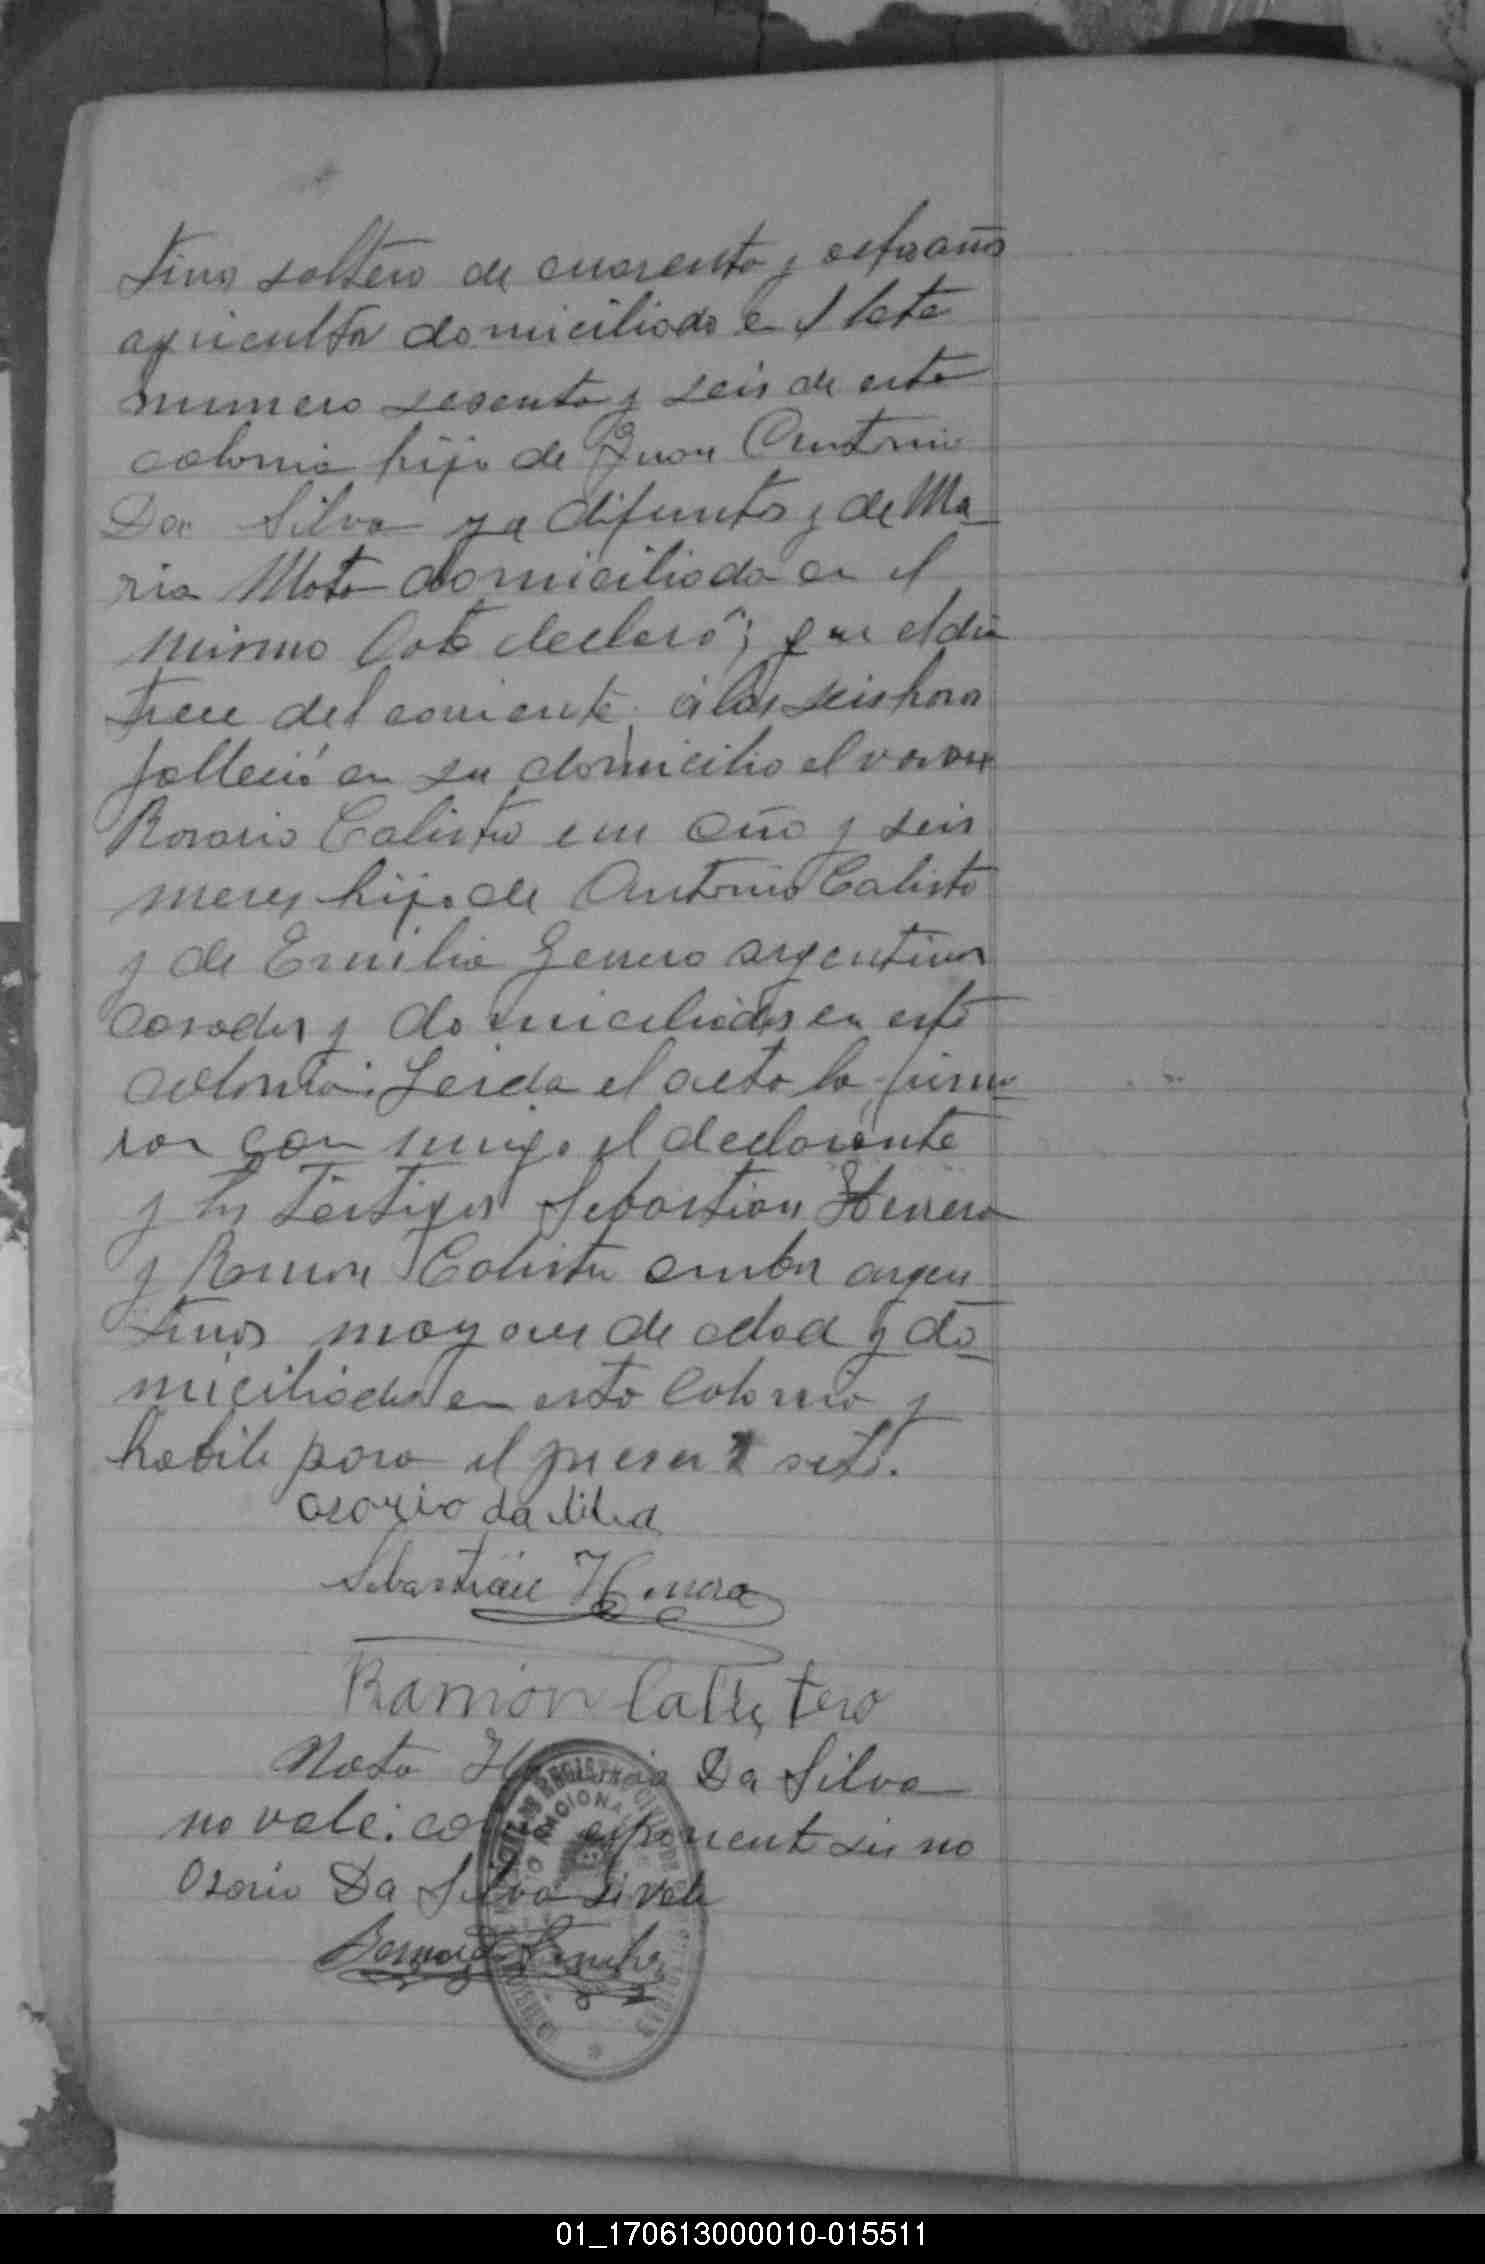 tino soltero de cuarenta y ocho años
agricultor domiciliado en el lote
numero sesenta y seis de esta
colonia hijo de Juan Antonio
Da Silva ya difunto y de Ma_
ria Mota domiciliada en el
mismo lote declaró; que el dia
trece del corriente á las seis horas
falleció en su domicilio el varon
Rosario Calisto e un año y seis
meses hijo de Antonio Calisto
y de Emilia argentinos
casados y domiciliados en esta
colonia. Leida el acta la firma_
ron con migo el declarante
y los testigos Sebastian Herrera
y Ramon Calisto ambos argen
tinos mayores de edad y do_
miciliados en esta Colonia y
habile para el present acto.
osorio da silva
Sebastián Herrera
Ramón
Nota Da Silva
no vale: exponent sino
Osorio Da Silva si vale
REGISTRO CIVIL
NACIONAL
01_170613000010-015511